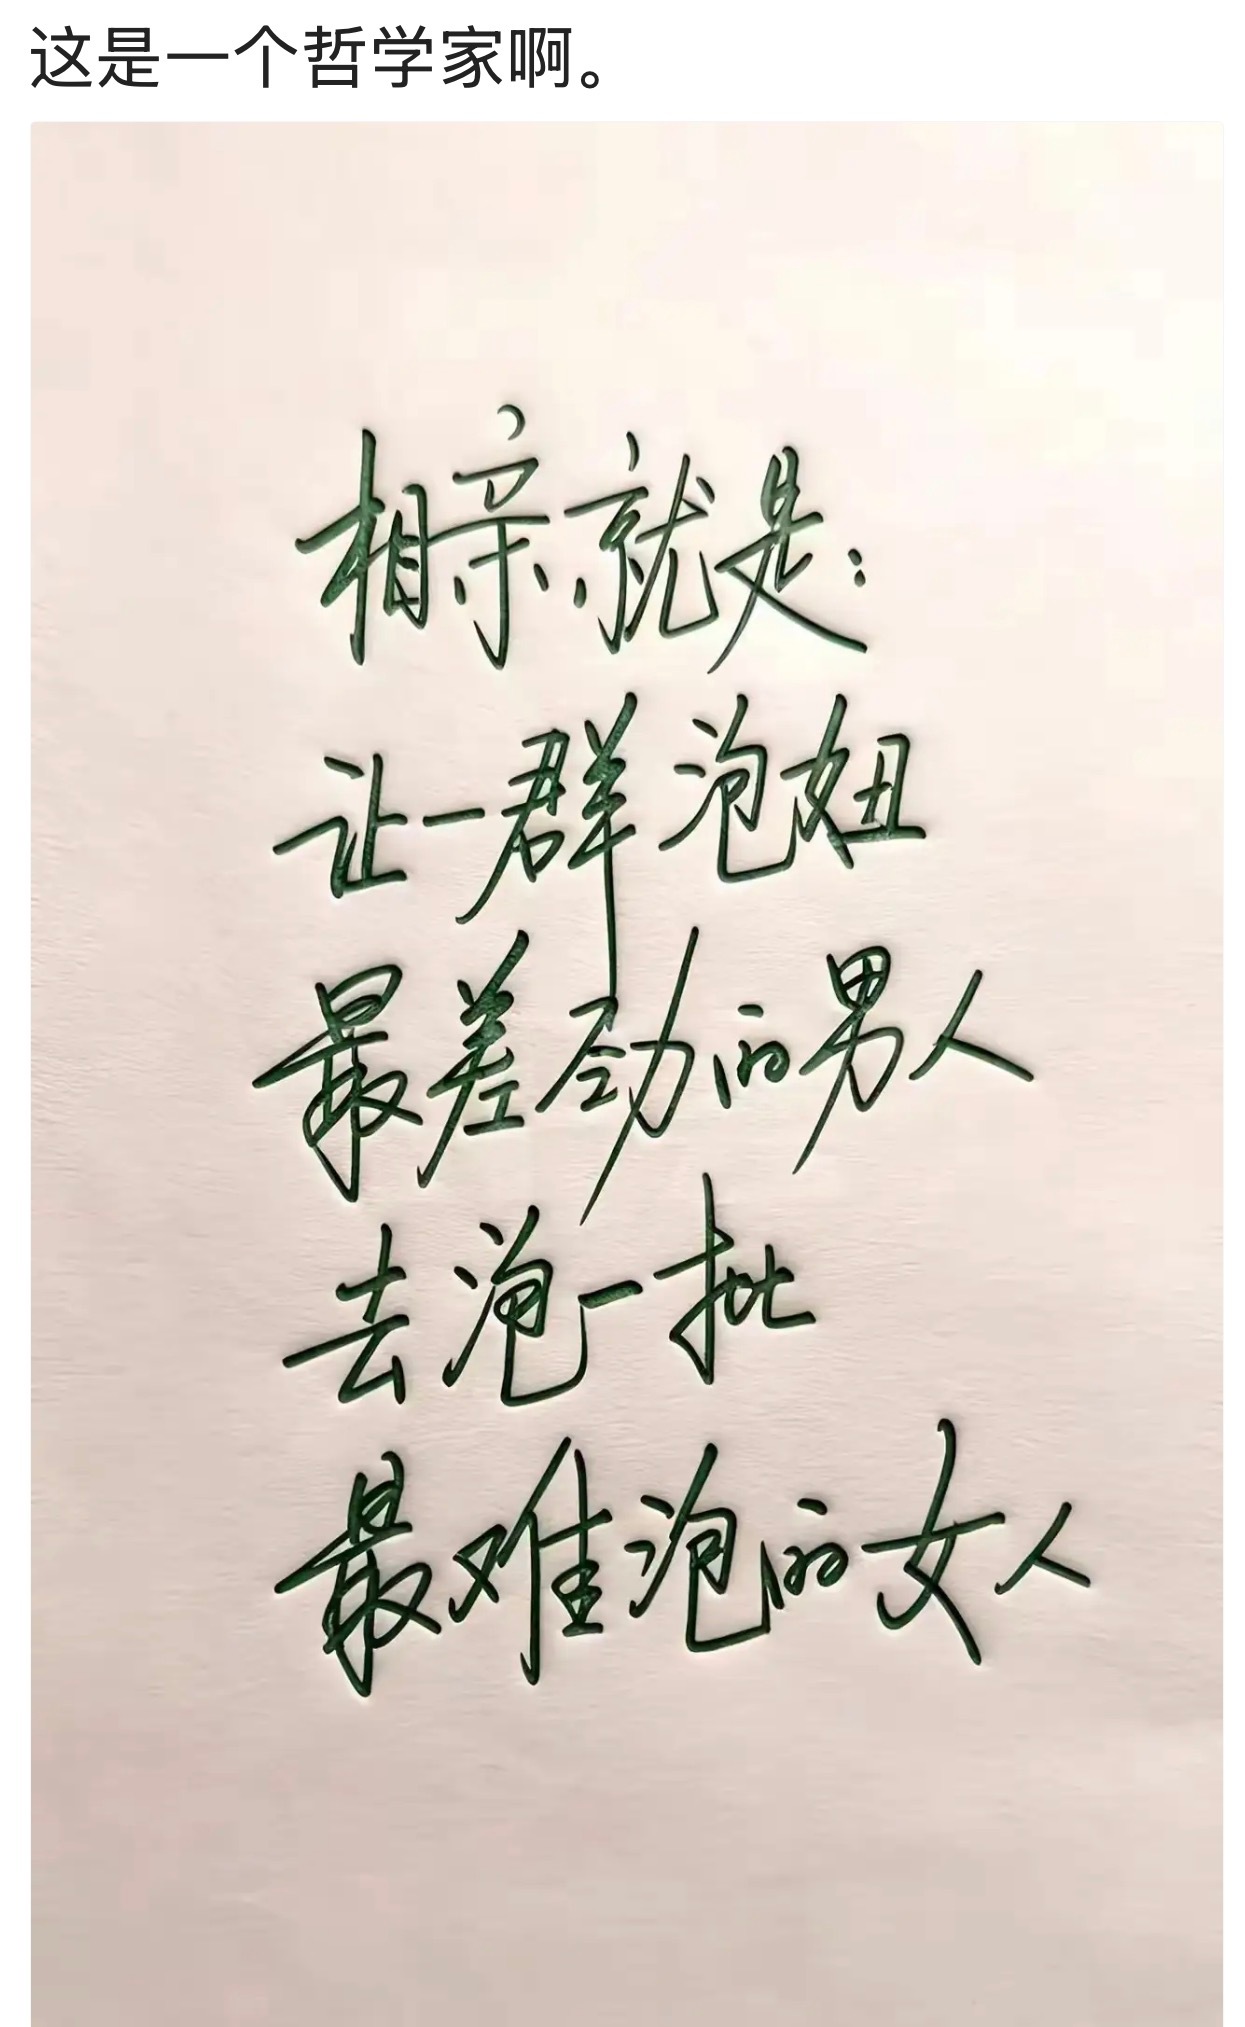 这是一个哲学家啊。
相亲就是:
让一群泡妞
最差劲的男人
去泡一批
最难泡的女人